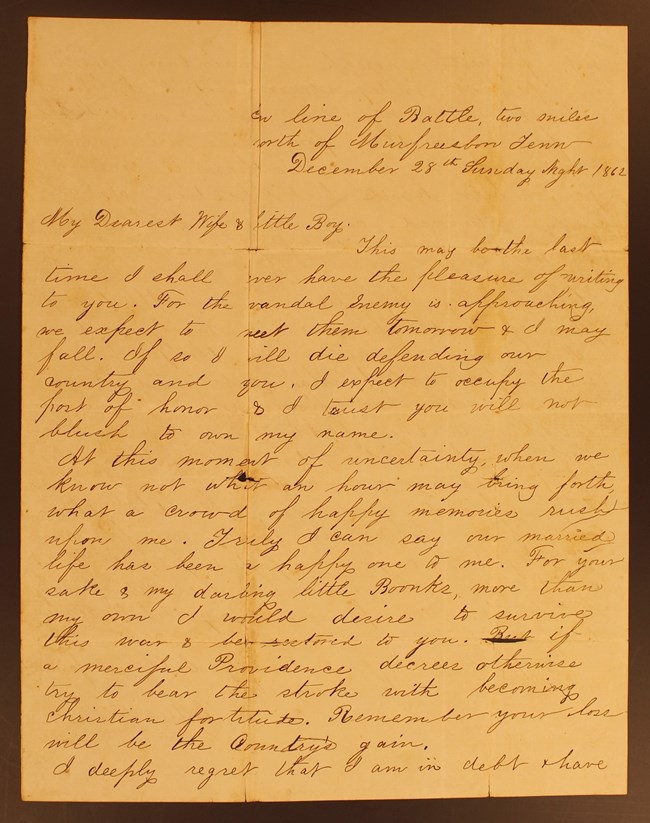 in line of Battle, two miles
north of Murfreesboro Tenn
December 28th Sunday Night 1862
My Dearest Wife & little Boy.
This may be the last
time I shall ever have the pleasure of writing
to you. For the vandal Enemy is approaching,
we expect to meet them tomorrow & I may
fall. If so I will die defending our
country and you. I expect to occupy the
post of honor & I trust you will not
blush to own my name.
At this moment of uncertainty, when we
know not what an hour may bring forth
what a crowd of happy memories rush
upon me. Truly I can say our married
life has been a happy one to me. For your
sake & my darling little Boonks, more than
my own I would desire to survive
this war & be restored to you. But if
a merciful Providence decrees otherwise
try to bear the stroke with becoming
christian fortitude. Remember your loss
will be the Country's gain.
I deeply regret that I am in debt & have